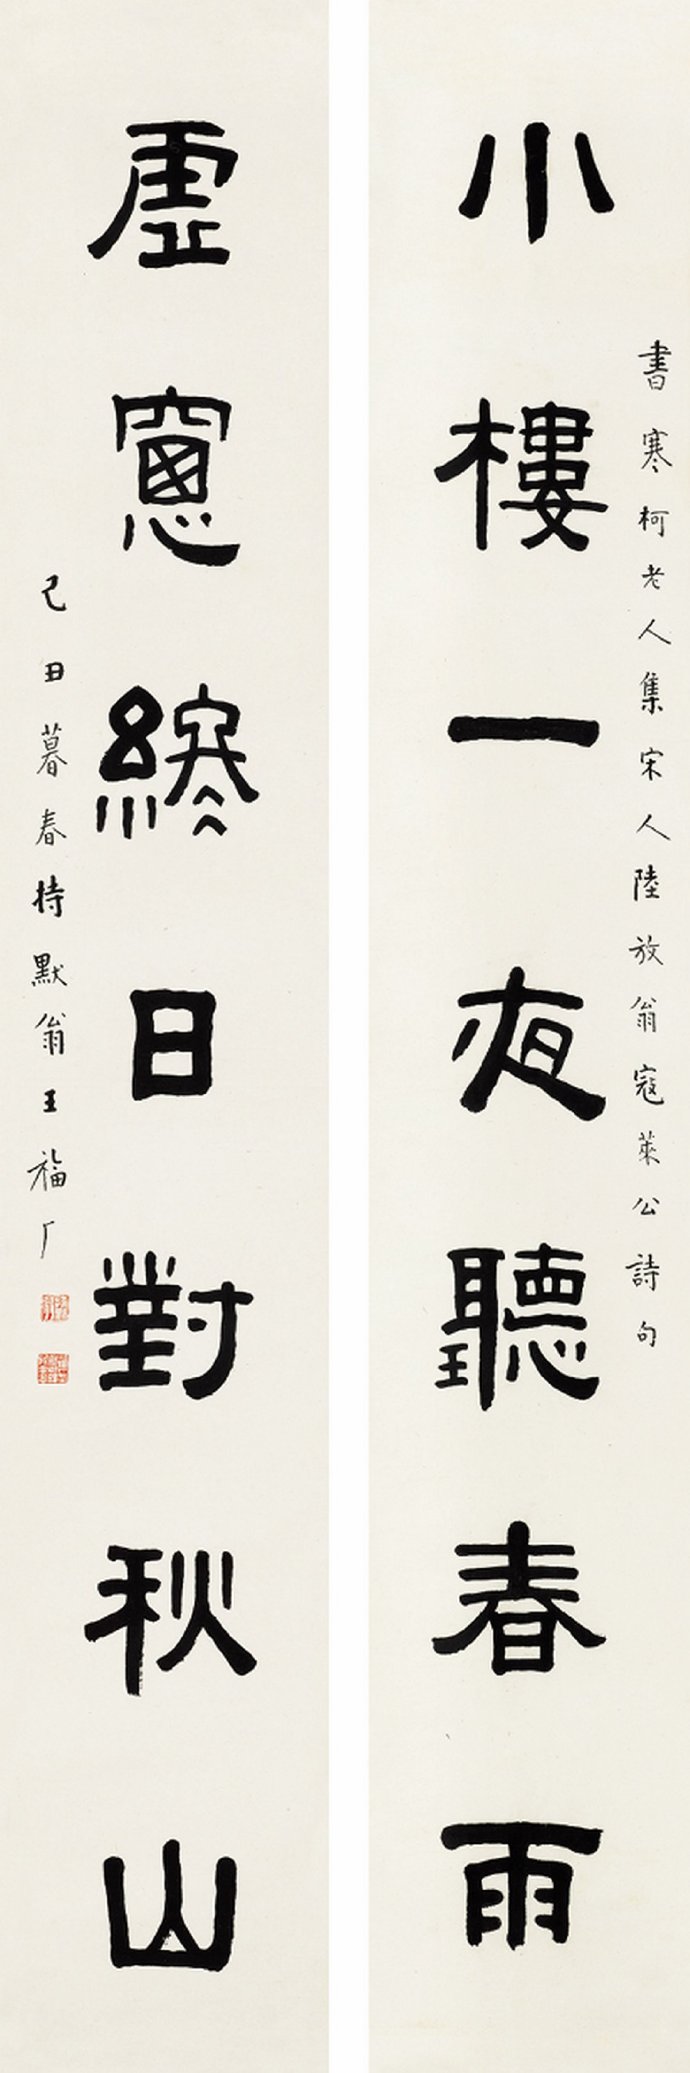 小樓一夜聽春雨
書寒柯老人集宋人陸放翁寇萊公詩句
虛窻終日對秋山
己丑暮春持默翁王福厂